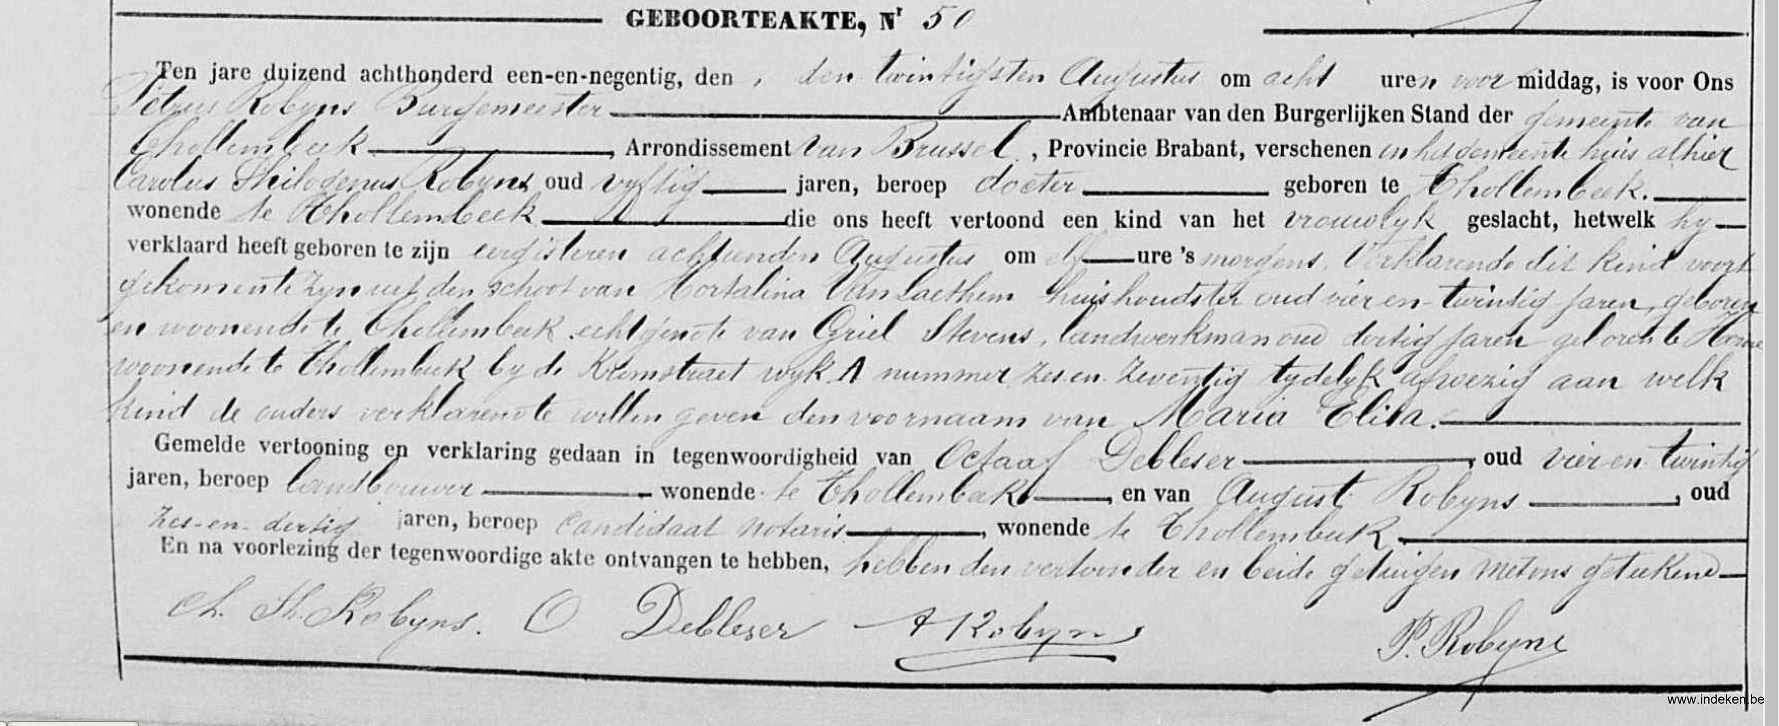 GEBOORTEAKTE, Nr 50
Ten jare duizend achthonderd een-en-negentig, den , den twintigsten Augustus om acht uren voor middag, is voor Ons
Petrus Robyns Burgemeester Ambtenaar van den Burgerlijken Stand der gemeente van
Thollembeek , Arrondissement van Brussel , Provincie Brabant, verschenen in het gemeente huis alhier
Carolus Philogenus Robyns oud vyftig jaren, beroep docter geboren te Thollembeek.
wonende te Thollembeek die ons heeft vertoond een kind van het vrouwlyk geslacht, hetwelk hy
verklaard heeft geboren te zijn eergisteren achttienden Augustus om elf ure 's morgens. Verklarende dit kind voort
gekomen te zyn uit den schoot van Hortalina Van Laethem huishoudster oud vier en twintig jaren, geboren
en woonende te Thollembeek echtgenote van Griel Stevens, landwerkman oud dertig jaren geboren te
woonende te Thollembeek by de Kremstraet wyk A nummer zes en zeventig tydelyk afwezig aan welk
kind de ouders verklaren te willen geven den voornaam van Maria Elisa.
Gemelde vertooning en verklaring gedaan in tegenwoordigheid van Octaaf Debleser , oud vier en twintig
jaren, beroep landbouwer wonende te Thollembeek , en van August Robyns , oud
zes-en-dertig jaren, beroep candidaat notaris , wonende te Thollembeek
En na voorlezing der tegenwoordige akte ontvangen te hebben, hebben den vertoonder en beide getuigen met ons geteekend
Ch. Ph. Robyns. O Debleser A Robyns P. Robyns
www.indeken.be